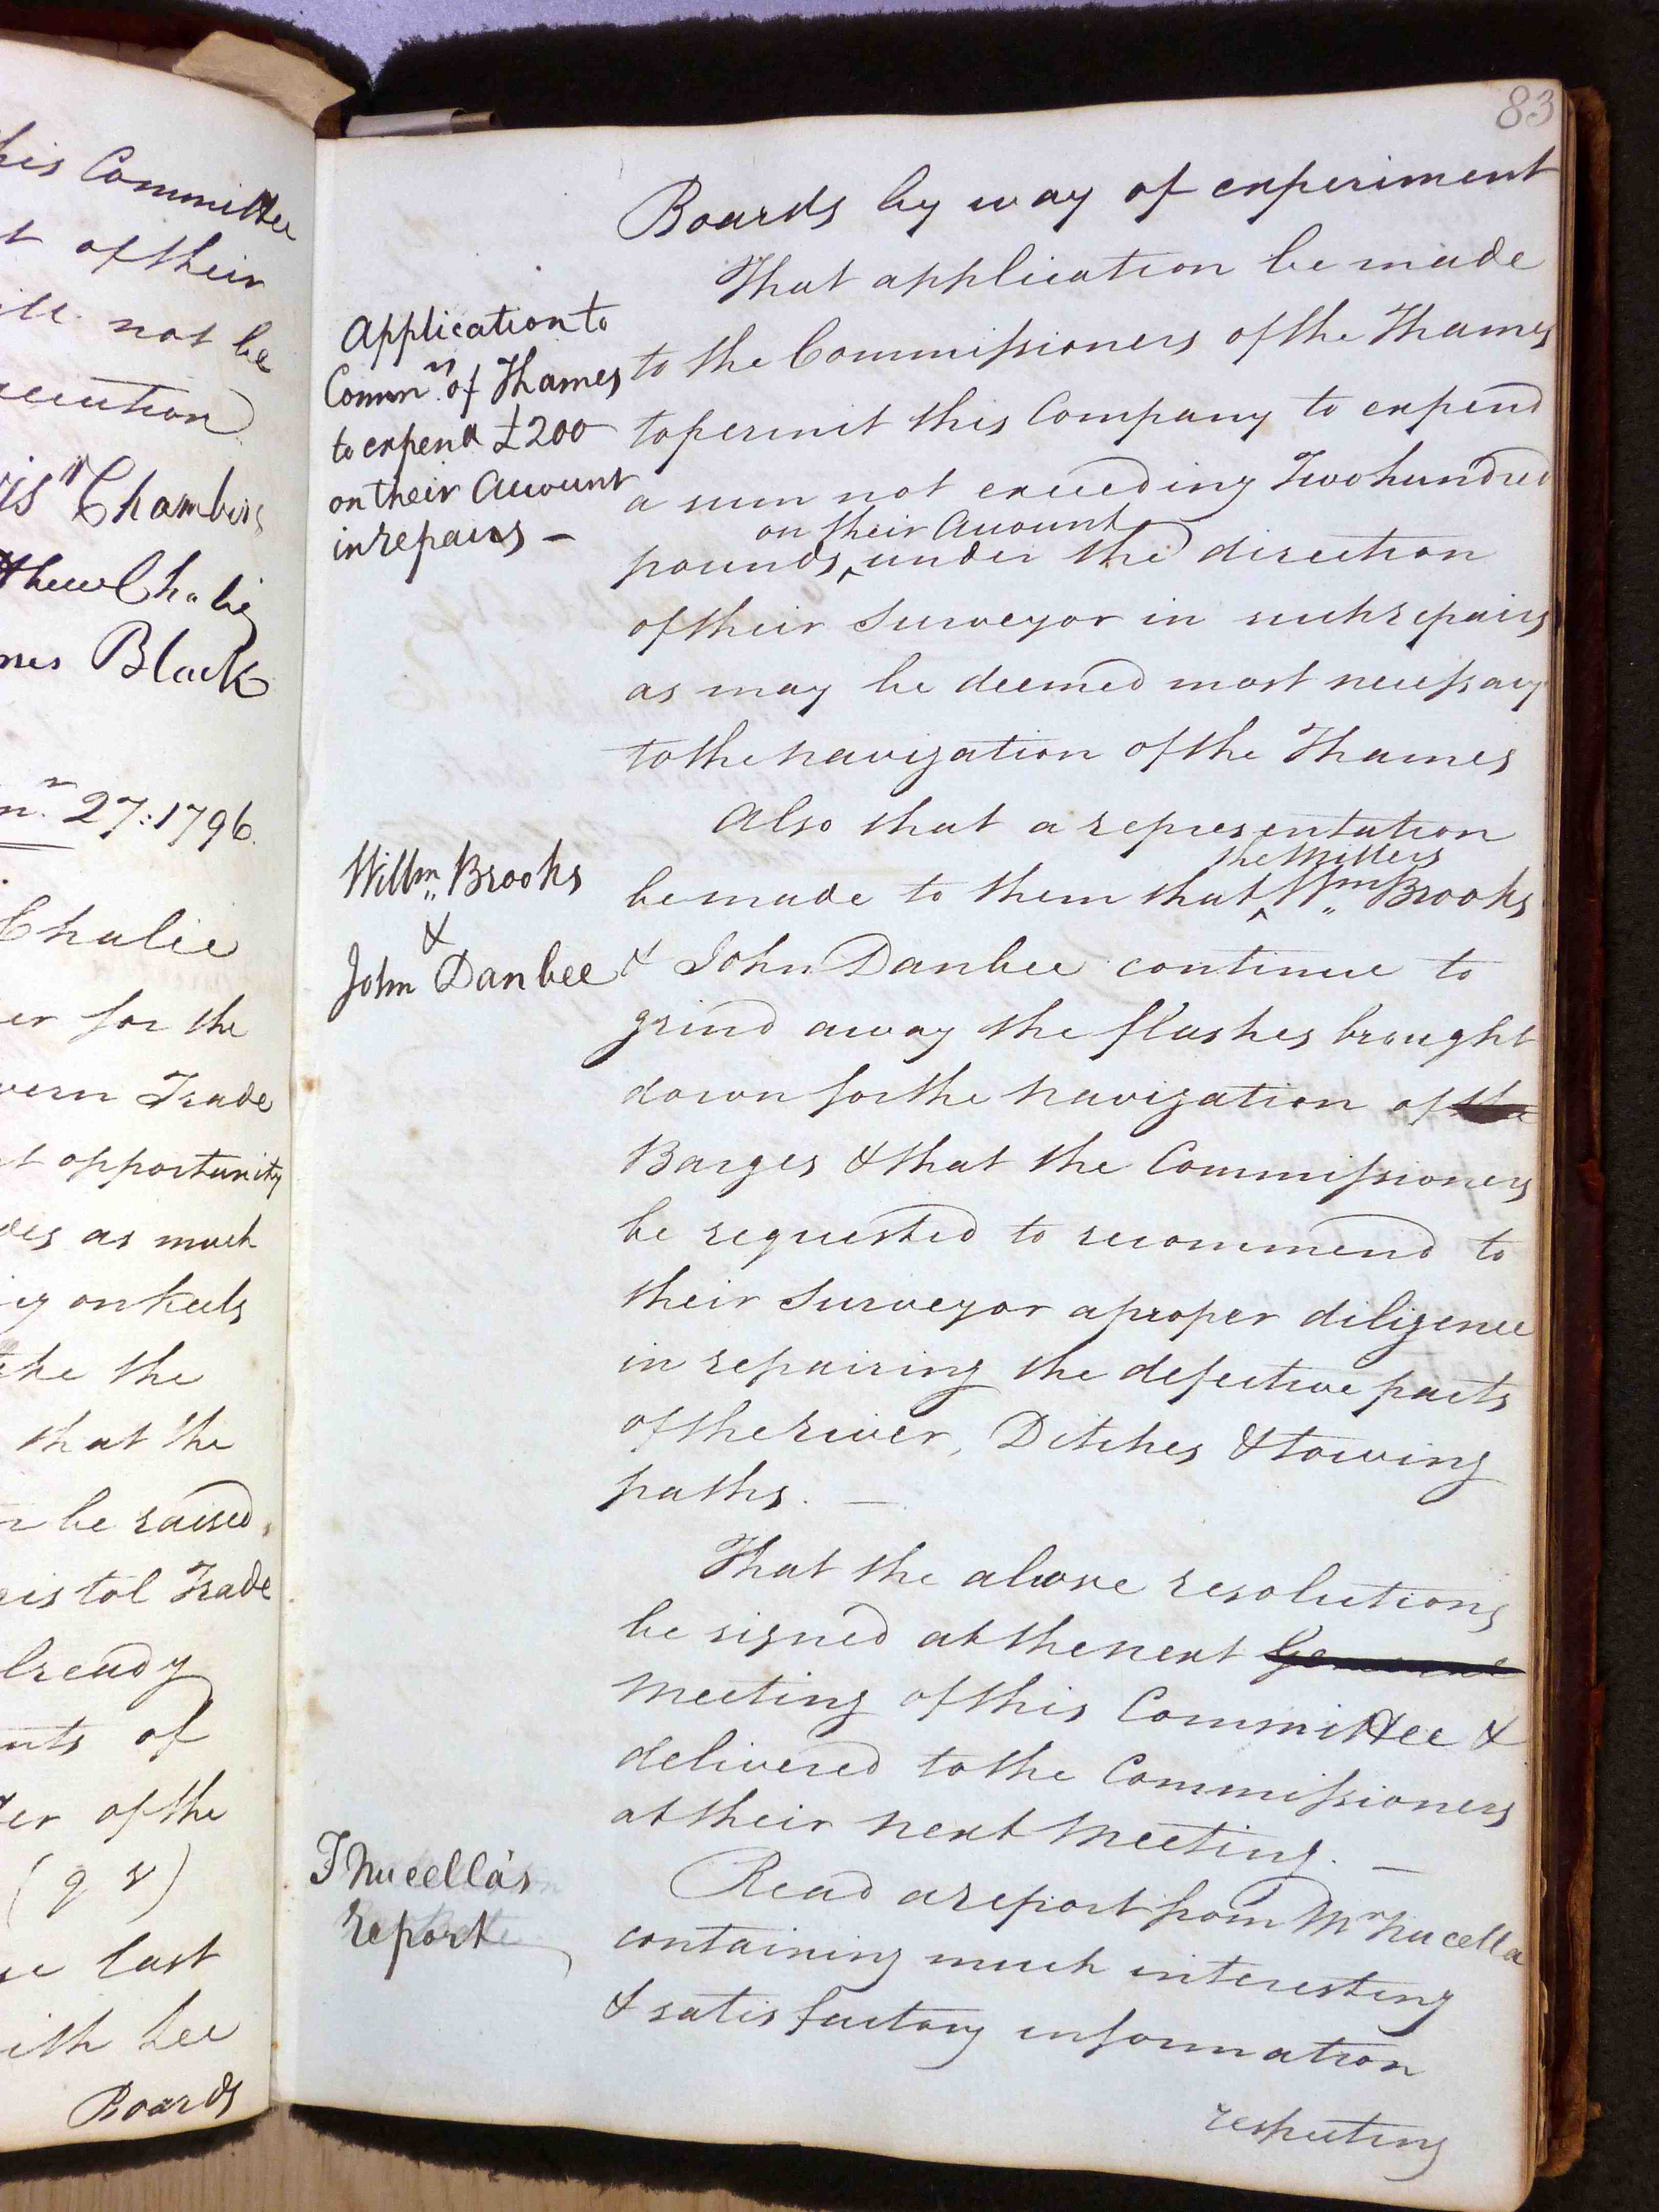 his Committee
t of their
ill not be
ecution
is Chambers
thew Chalie
mes Black
27: 1796.
Chalie
er for the
vern Trade
t opportunity
des as much
on keels
ke the
that the
n be raised,
ristol Trade
lready
nts of
er of the
(q v)
se last
ith Lee
Boards
83
Boards by way of experiment
That application be made
Application to
Commrs. of Thames
to expend £200
on their Account
in repairs –
to the Commissioners of the Thames
to permit this Company to expend
a sum not exceeding Two hundred
on their Account
pounds ^ under the direction
of their Surveyor in such repairs
as may be deemed most necessary
to the navigation of the Thames
Also that a representation
Willm. Brooks
&
John Danbee
the Millers
be made to them that ^ Wm. Brooks
& John Danbee continue to
grind away the flashes brought
down for the navigation of the
Barges & that the Commissioners
be requested to recommend to
their Surveyor a proper diligence
in repairing the defective parts
of the river, Ditches & towing
paths. —
That the above resolutions
be signed at the next General
Meeting of this Committee &
delivered to the Commissioners
at their next Meeting. —
J Nucella's
report
Read a report from Mr Nucella
containing much interesting
& satisfactory information
respecting